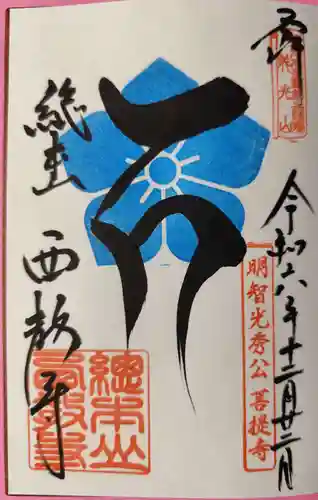 令和六年十二月廿二日
明智光秀公菩提寺
総本山
西教寺
總本山
西教寺